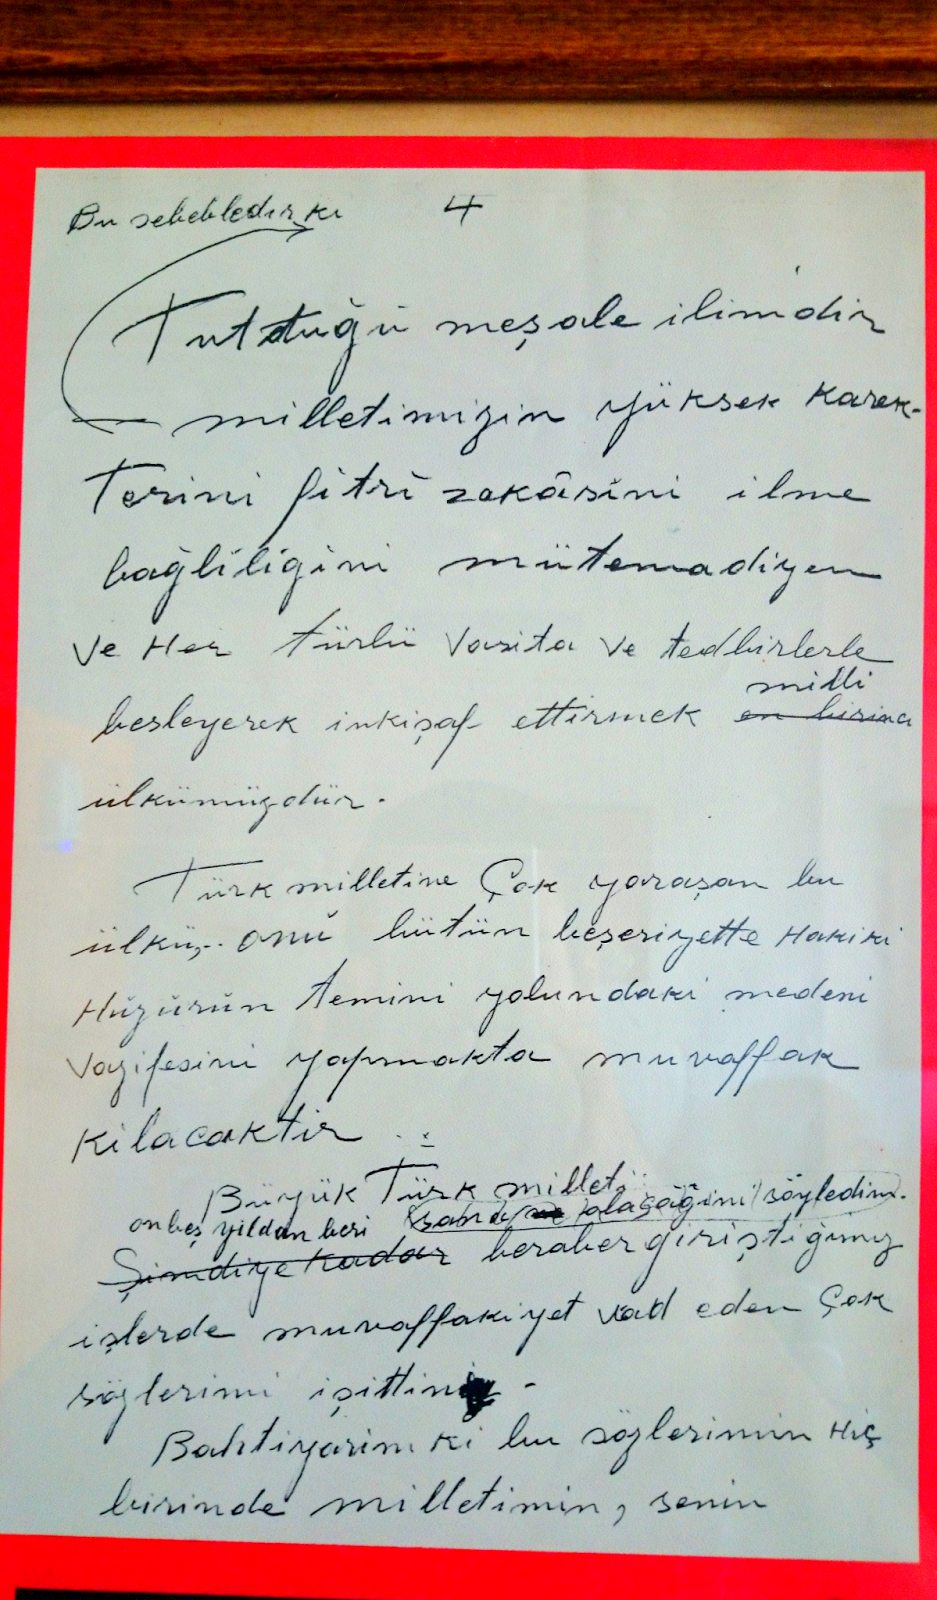 Bu sebebledir ki 4
Tuttuğu meşale ilimdir
milletimizin yüksek karek-
Terini fitrî zekâsini ilme
bağliliğini mütemadiyen
ve Her türlü vasita ve tedbirlerle
milli
besleyerek inkişaf ettirmek en birinci
ülkümüzdür.
Türk milletine Çok yaraşan bu
ülkü,.. onu bütün beşeriyette Hakiki
Huzurun temini yolundaki medeni
vazifesini yapmakta muvaffak
kilacaktir.
Büyük Türk milleti
onbeş yildan beri olacağini söyledim.
Şimdiye kadar beraber giriştiğimiz
işlerde muvaffakiyet vad eden Çok
sözlerimi işittin.
Bahtiyarim ki bu sözlerimin Hiç
birinde milletimin, senin